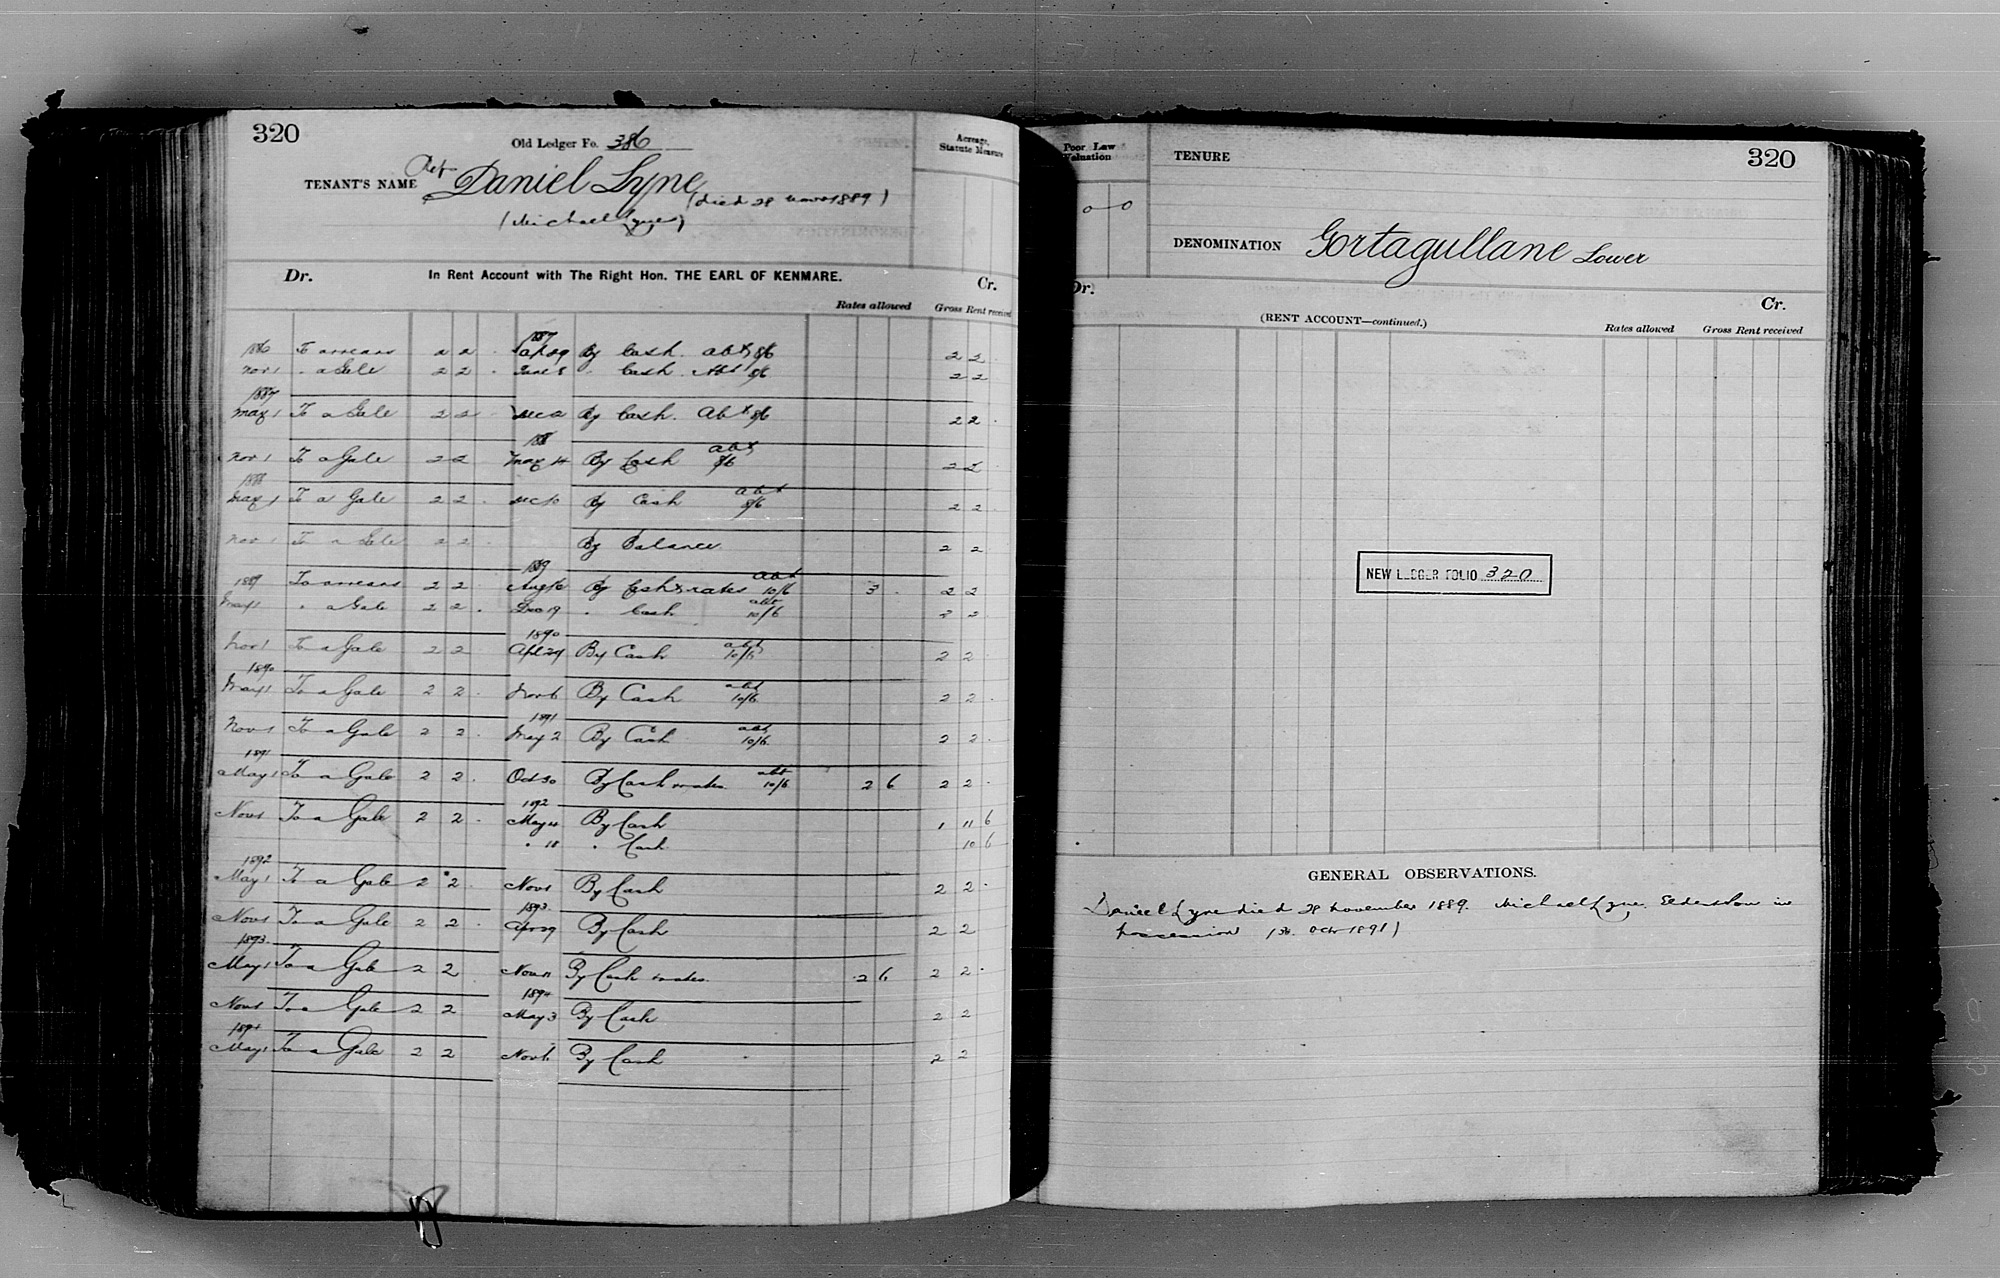 320
Old Ledger Fo. 386
Acreage, Statute Measure
TENANT'S NAME Daniel Lyne (died 28 Novr 1889)
(Michael Lyne)
Dr. In Rent Account with The Right Hon. THE EARL OF KENMARE. Cr.
Rates allowed Gross Rent received
1887
1886 To arrears 2 2 . 29 By Cash. Abt 8/6 2 2 .
Nov 1 " a Gale 2 2 . June 8 " Cash. Abt 8/6 2 2
1887
May 1 To a Gale 2 2 . Dec 2 By Cash. Abt 8/6 2 2 .
1888
Nov 1 To a Gale 2 2 May 14 By Cash Abt 8/6 2 2
1888
May 1 To a Gale 2 2 . Dec 10 By Cash Abt 8/6 2 2
Nov 1 To a Gale 2 2 . By Balance 2 2
1889
1889 To arrears 2 2 Aug 16 By Cash & rates Abt 10/6 3 . 2 2
May 1 " a Gale 2 2 . Dec 19 " Cash abt 10/6 2 2
1890
Nov 1 To a Gale 2 2 Apl 29 By Cash abt 10/6 2 2 .
1890
May 1 To a Gale 2 2 . Nov 6 By Cash abt 10/6 2 2 .
1891
Nov 1 To a Gale 2 2 . May 2 By Cash abt 10/6 2 2 .
1891
May 1 To a Gale 2 2 . Oct 30 By Cash & rates abt 10/6 2 6 2 2 .
1892
Nov 1 To a Gale 2 2 . May 4 By Cash 1 11 6
" 18 " Cash 10 6
1892
May 1 To a Gale 2 2 . Nov 1 By Cash 2 2 .
1893
Nov 1 To a Gale 2 2 . Apr 29 By Cash 2 2
1893
May 1 To a Gale 2 2 Nov 11 By Cash & rates. 2 6 2 2 .
1894
Nov 1 To a Gale 2 2 May 3 By Cash 2 2
1894
May 1 To a Gale 2 2 Nov 6 By Cash 2 2
Poor Law Valuation
TENURE 320
DENOMINATION Gortagullane Lower
Dr. Cr.
(RENT ACCOUNT—continued.)
Rates allowed Gross Rent received
NEW LEDGER FOLIO 320
GENERAL OBSERVATIONS.
Daniel Lyne died 28 November 1889. Michael Lyne, Eldest Son in
possession Octr 1891)